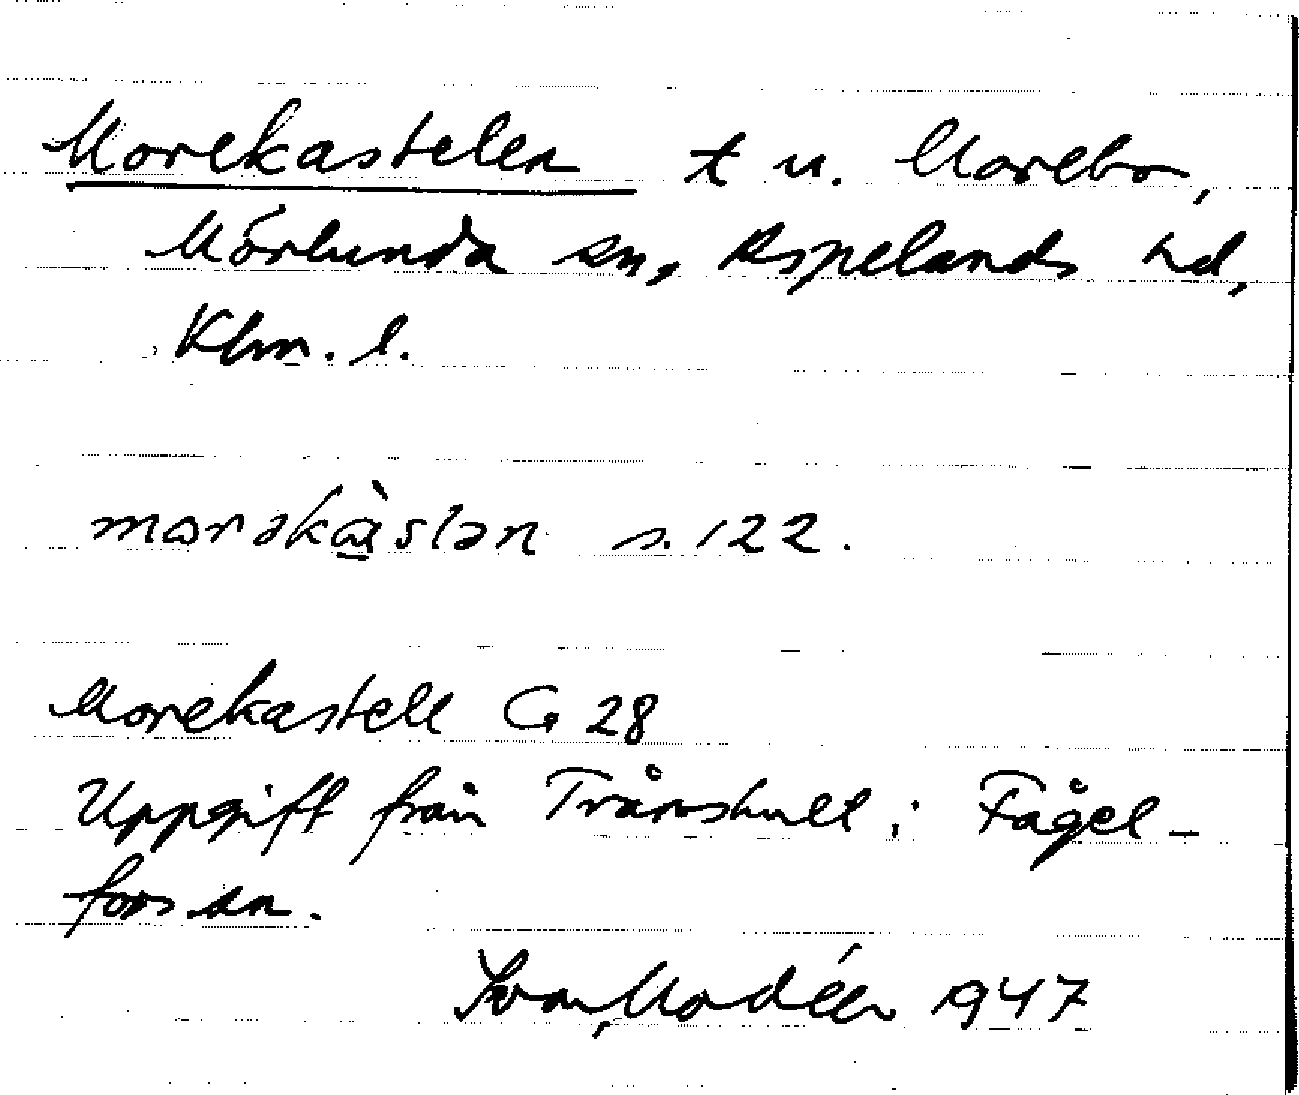 Morekastelen t u. Morebo,
Mörlunda sn, Aspelands hd,
Klm. l.
morəkàslən s. 122.
Morekastell G 28
Uppgift från Tvånshult i Fågel-
fors sn.
Ivar Modéer 1947